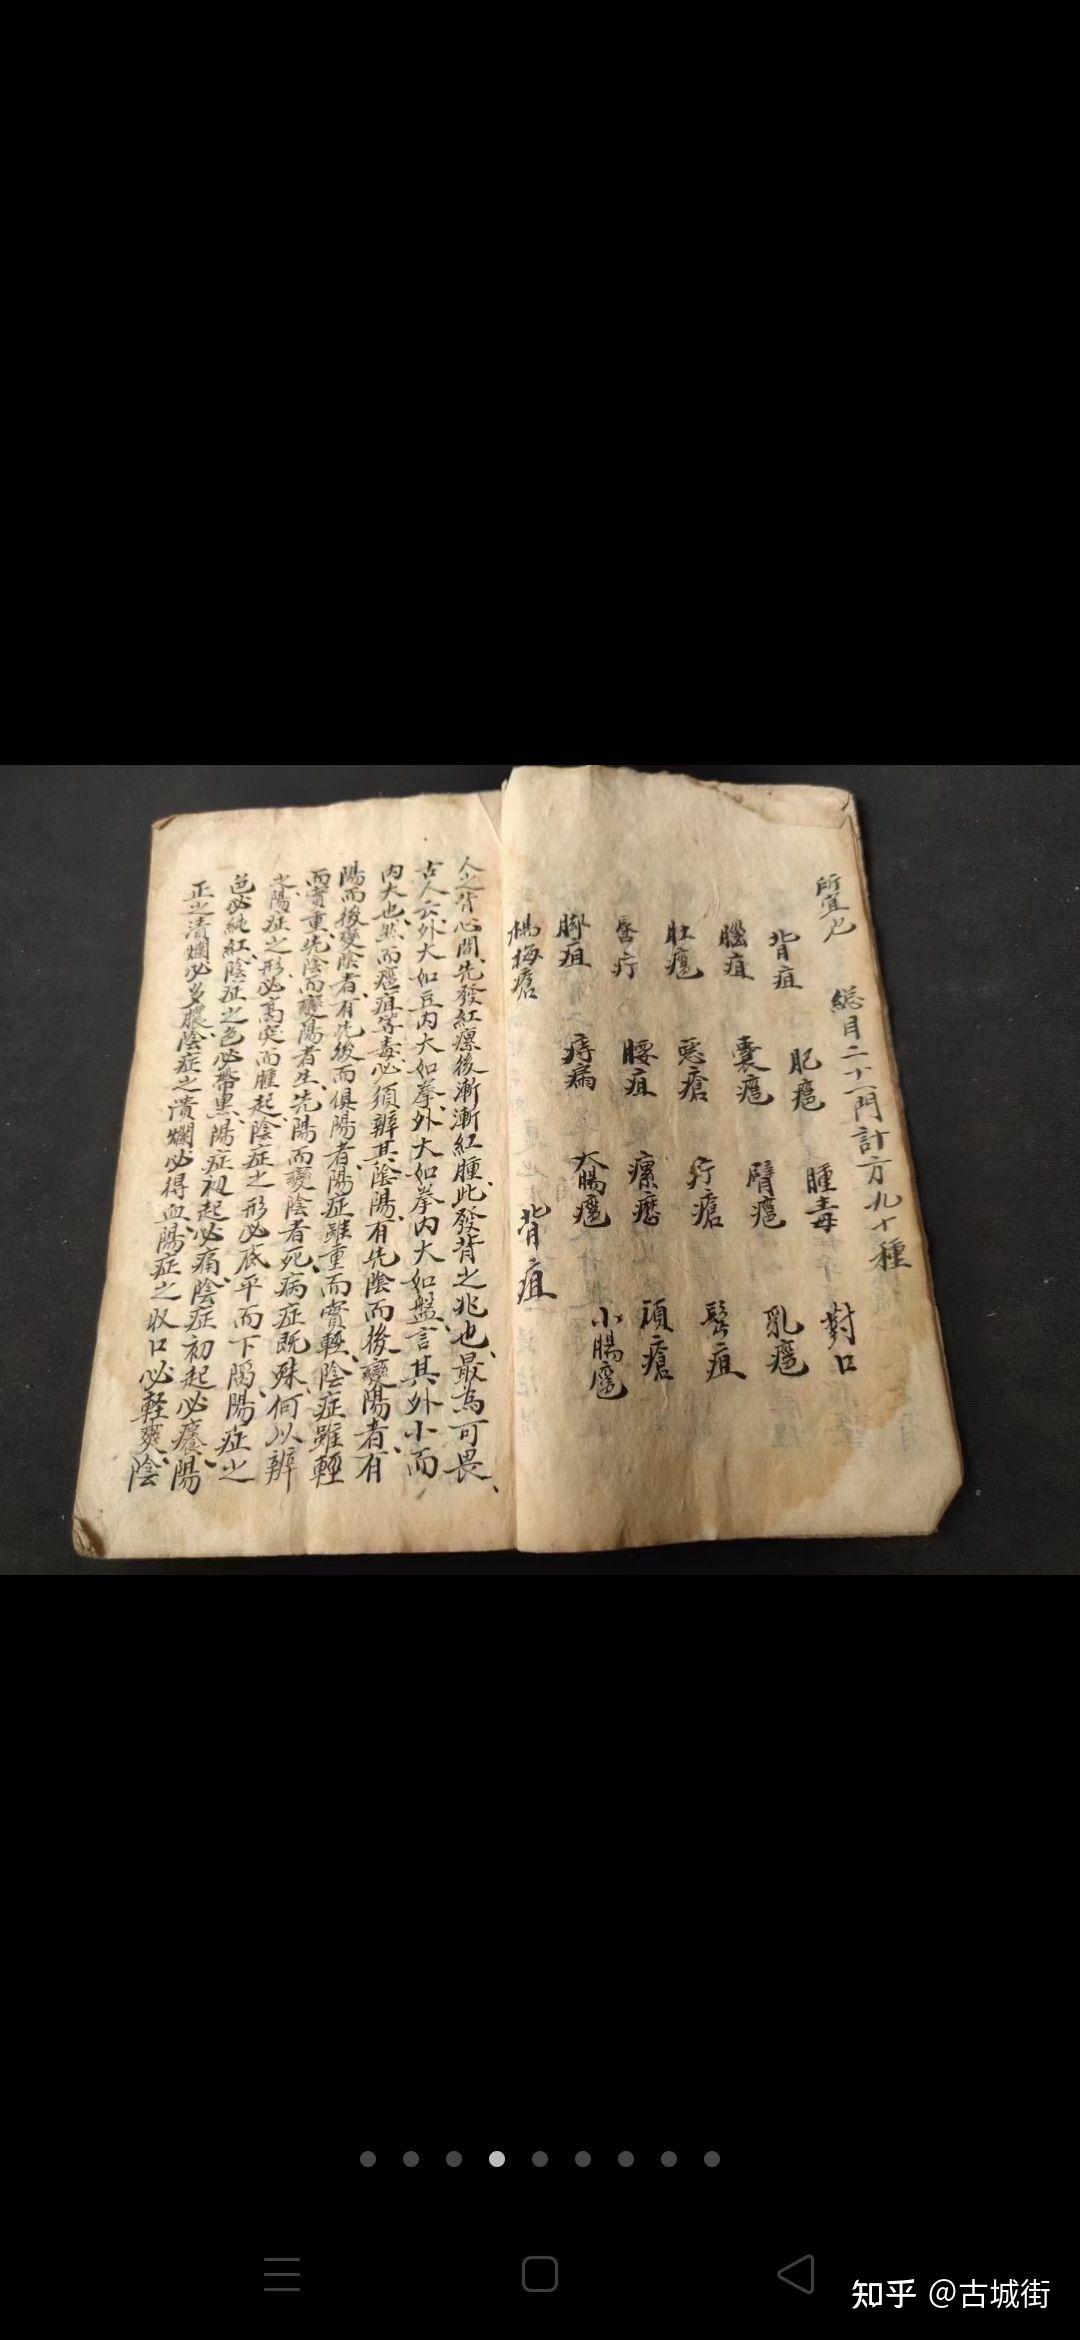 所宜也
總目二十一門計方九十種
背疽 肥瘡 腫毒 對口
腦疽 囊癰 臂癰 乳癰
肚癰 惡瘡 疔瘡 髩疽
唇疔 腰疽 瘰癧 頑瘡
腳疽 痔漏 大腸癰 小腸癰
楊梅瘡
背疽
人之背心間、先發紅瘰後漸漸紅腫、此發背之兆也、最為可畏、
古人云、外大如豆、內大如拳、外大如拳、內大如盤、言其外小而
內大也、然而癰疽等毒、必須辨其陰陽、有先陰而後變陽者、有
陽而後變陰者、有先後而俱陽者、陽症雖重而實輕、陰症雖輕
而實重、先陰而變陽者生、先陽而變陰者死、病症既殊、何以辨
之、陽症之形、必高突而腫起、陰症之形、必底平而下陷、陽症之
色必純紅、陰症之色必帶黑、陽症初起必痛、陰症初起必癢、陽
正之潰爛必多膿、陰症之潰爛必得血、陽症之收口必輕爽、陰
知乎 @古城街